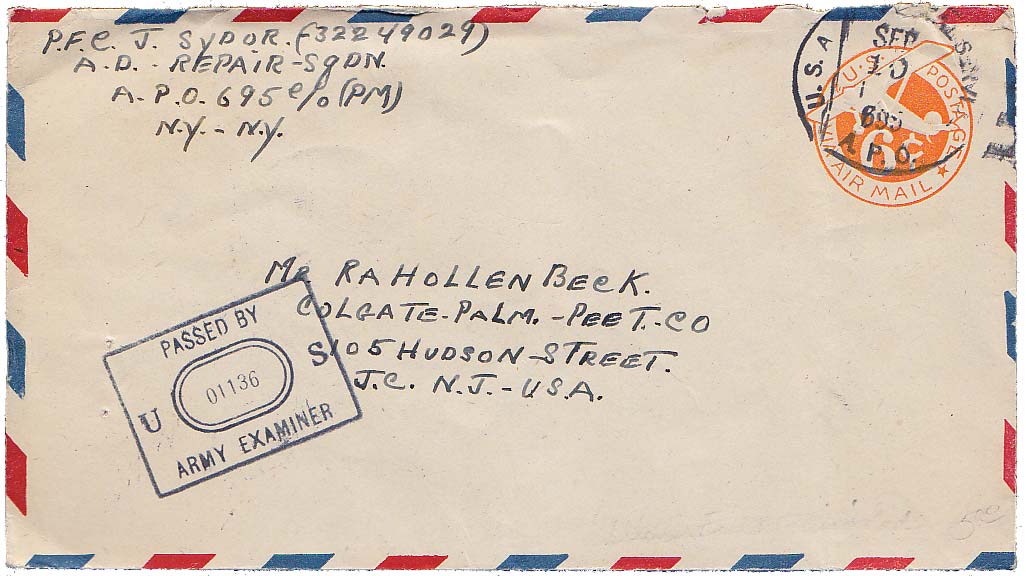 P.F.C. J. SYDOR. (32249029)
A.D. - REPAIR-SQDN.
A.P.O. 695 c/o (PM)
N.Y. - N.Y.
U.S.A
SEP
10
695
A.P.O.
U.S. POSTAGE
6¢
VIA AIR MAIL
MR RA HOLLENBECK.
COLGATE-PALM.-PEET.-CO
105 HUDSON-STREET.
J.C. N.J.-U.S.A.
PASSED BY
U 01136 S
ARMY EXAMINER